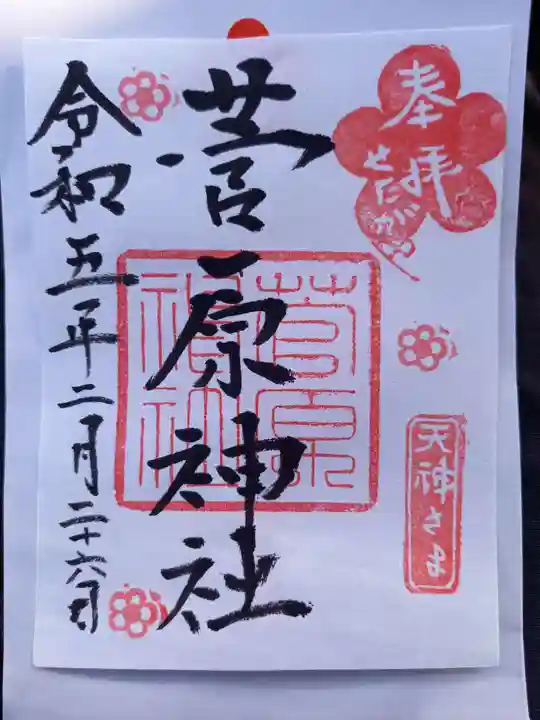 奉拝
せたがや
天神さま
菅原神社
菅原神社
令和五年二月二十六日